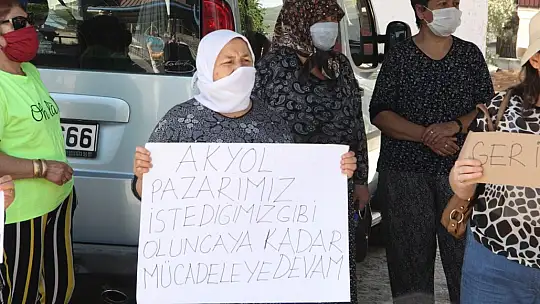 AKYOL
PAZARIMIZ
İSTEDİĞİMİZ GİBİ
OLUNCAYA KADAR
MÜCADELEYE DEVAM
GERİ
66
Oh